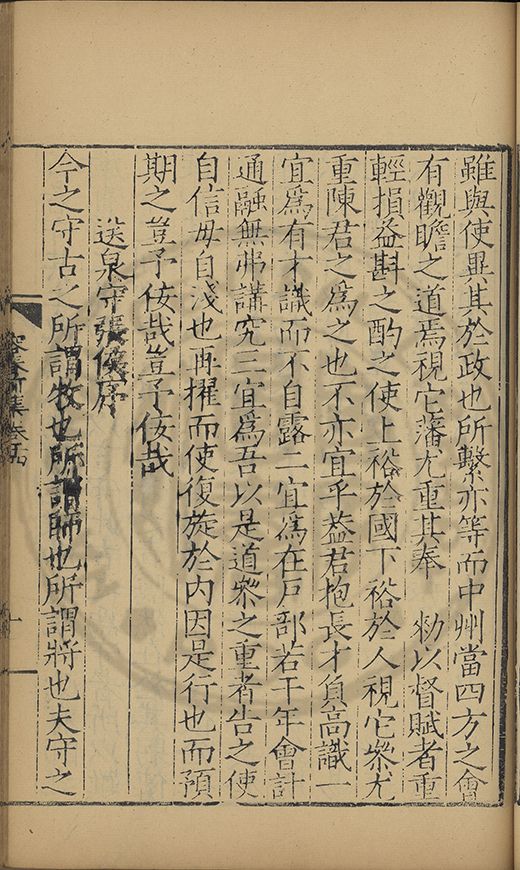 雖與使異其於政也所繫亦等而中州當四方之會
有觀瞻之道焉視它藩尤重其奉 勑以督賦者重
輕損益斟之酌之使上裕於國下裕於人視它叅尤
重陳君之爲之也不亦宜乎葢君抱長才負高識一
宜爲有才識而不自露二宜爲在戶部若干年會計
通融無弗講究三宜爲吾以是道叅之重者告之使
自信毋自淺也再擢而使復旋於内因是行也而預
期之豈予佞哉豈予佞哉
送泉守張侯序
今之守古之所謂牧也所謂師也所謂將也夫守之